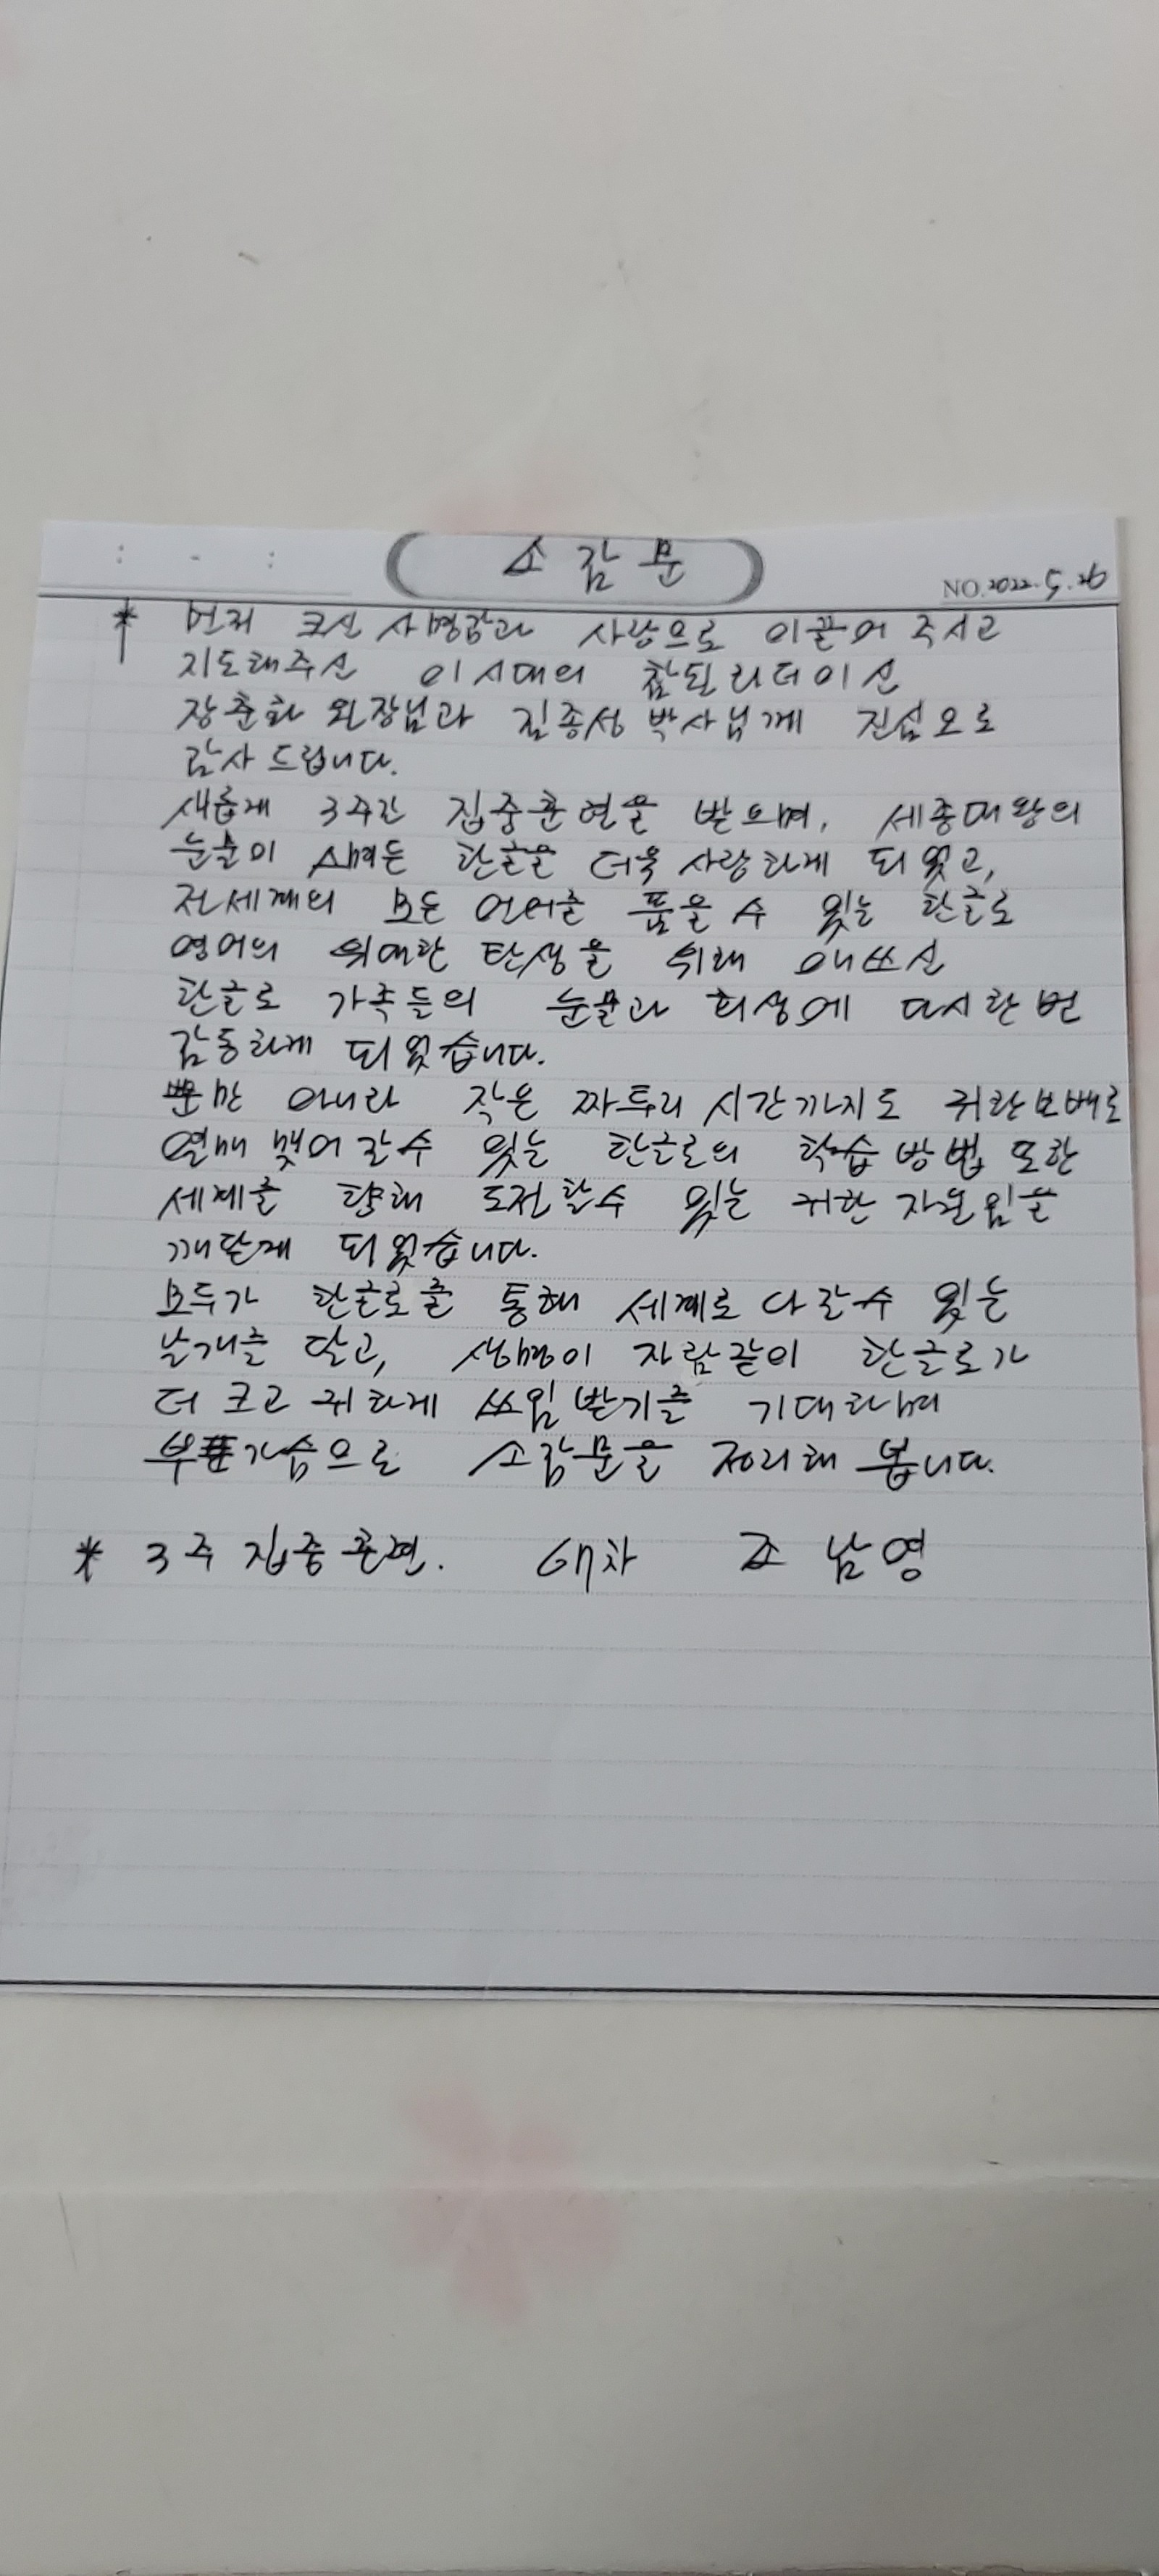 소감문
NO. 2022. 5. 26
* 먼저 크신 사명감과 사랑으로 이끌어 주시고
지도해주신 이시대의 참된리더이신
장춘화 원장님과 김종성 박사님께 진심으로
감사드립니다.
새롭게 3주간 집중훈련을 받으며, 세종대왕의
눈물이 스며든 한글을 더욱 사랑하게 되었고,
전세계의 모든 언어를 품을 수 있는 한글로
영어의 위대한 탄생을 위해 애쓰신
한글로 가족들의 눈물과 희생에 다시한번
감동하게 되었습니다.
뿐만 아니라 작은 짜투리 시간까지도 귀한보배로
열매 맺어갈수 있는 한글로의 학습방법 또한
세계를 향해 도전할수 있는 귀한 자원임을
깨닫게 되었습니다.
모두가 한글로를 통해 세계로 나갈수 있는
날개를 달고, 생명이 자람같이 한글로가
더 크고 귀하게 쓰임받기를 기대하며
부푼가슴으로 소감문을 정리해 봅니다.
* 3주 집중훈련. 차 조남영